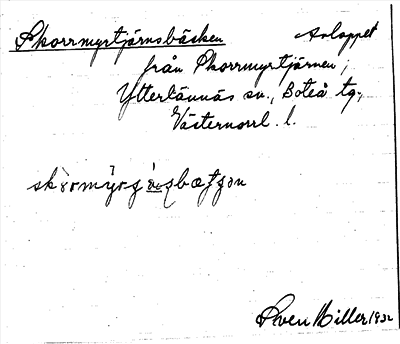 Skorrmyrtjärnsbäcken Avloppet
från Skorrmyrtjärnen,
Ytterlännäs sn., Boteå tg.,
Västernorrl. l.
Sven Hiller 1932